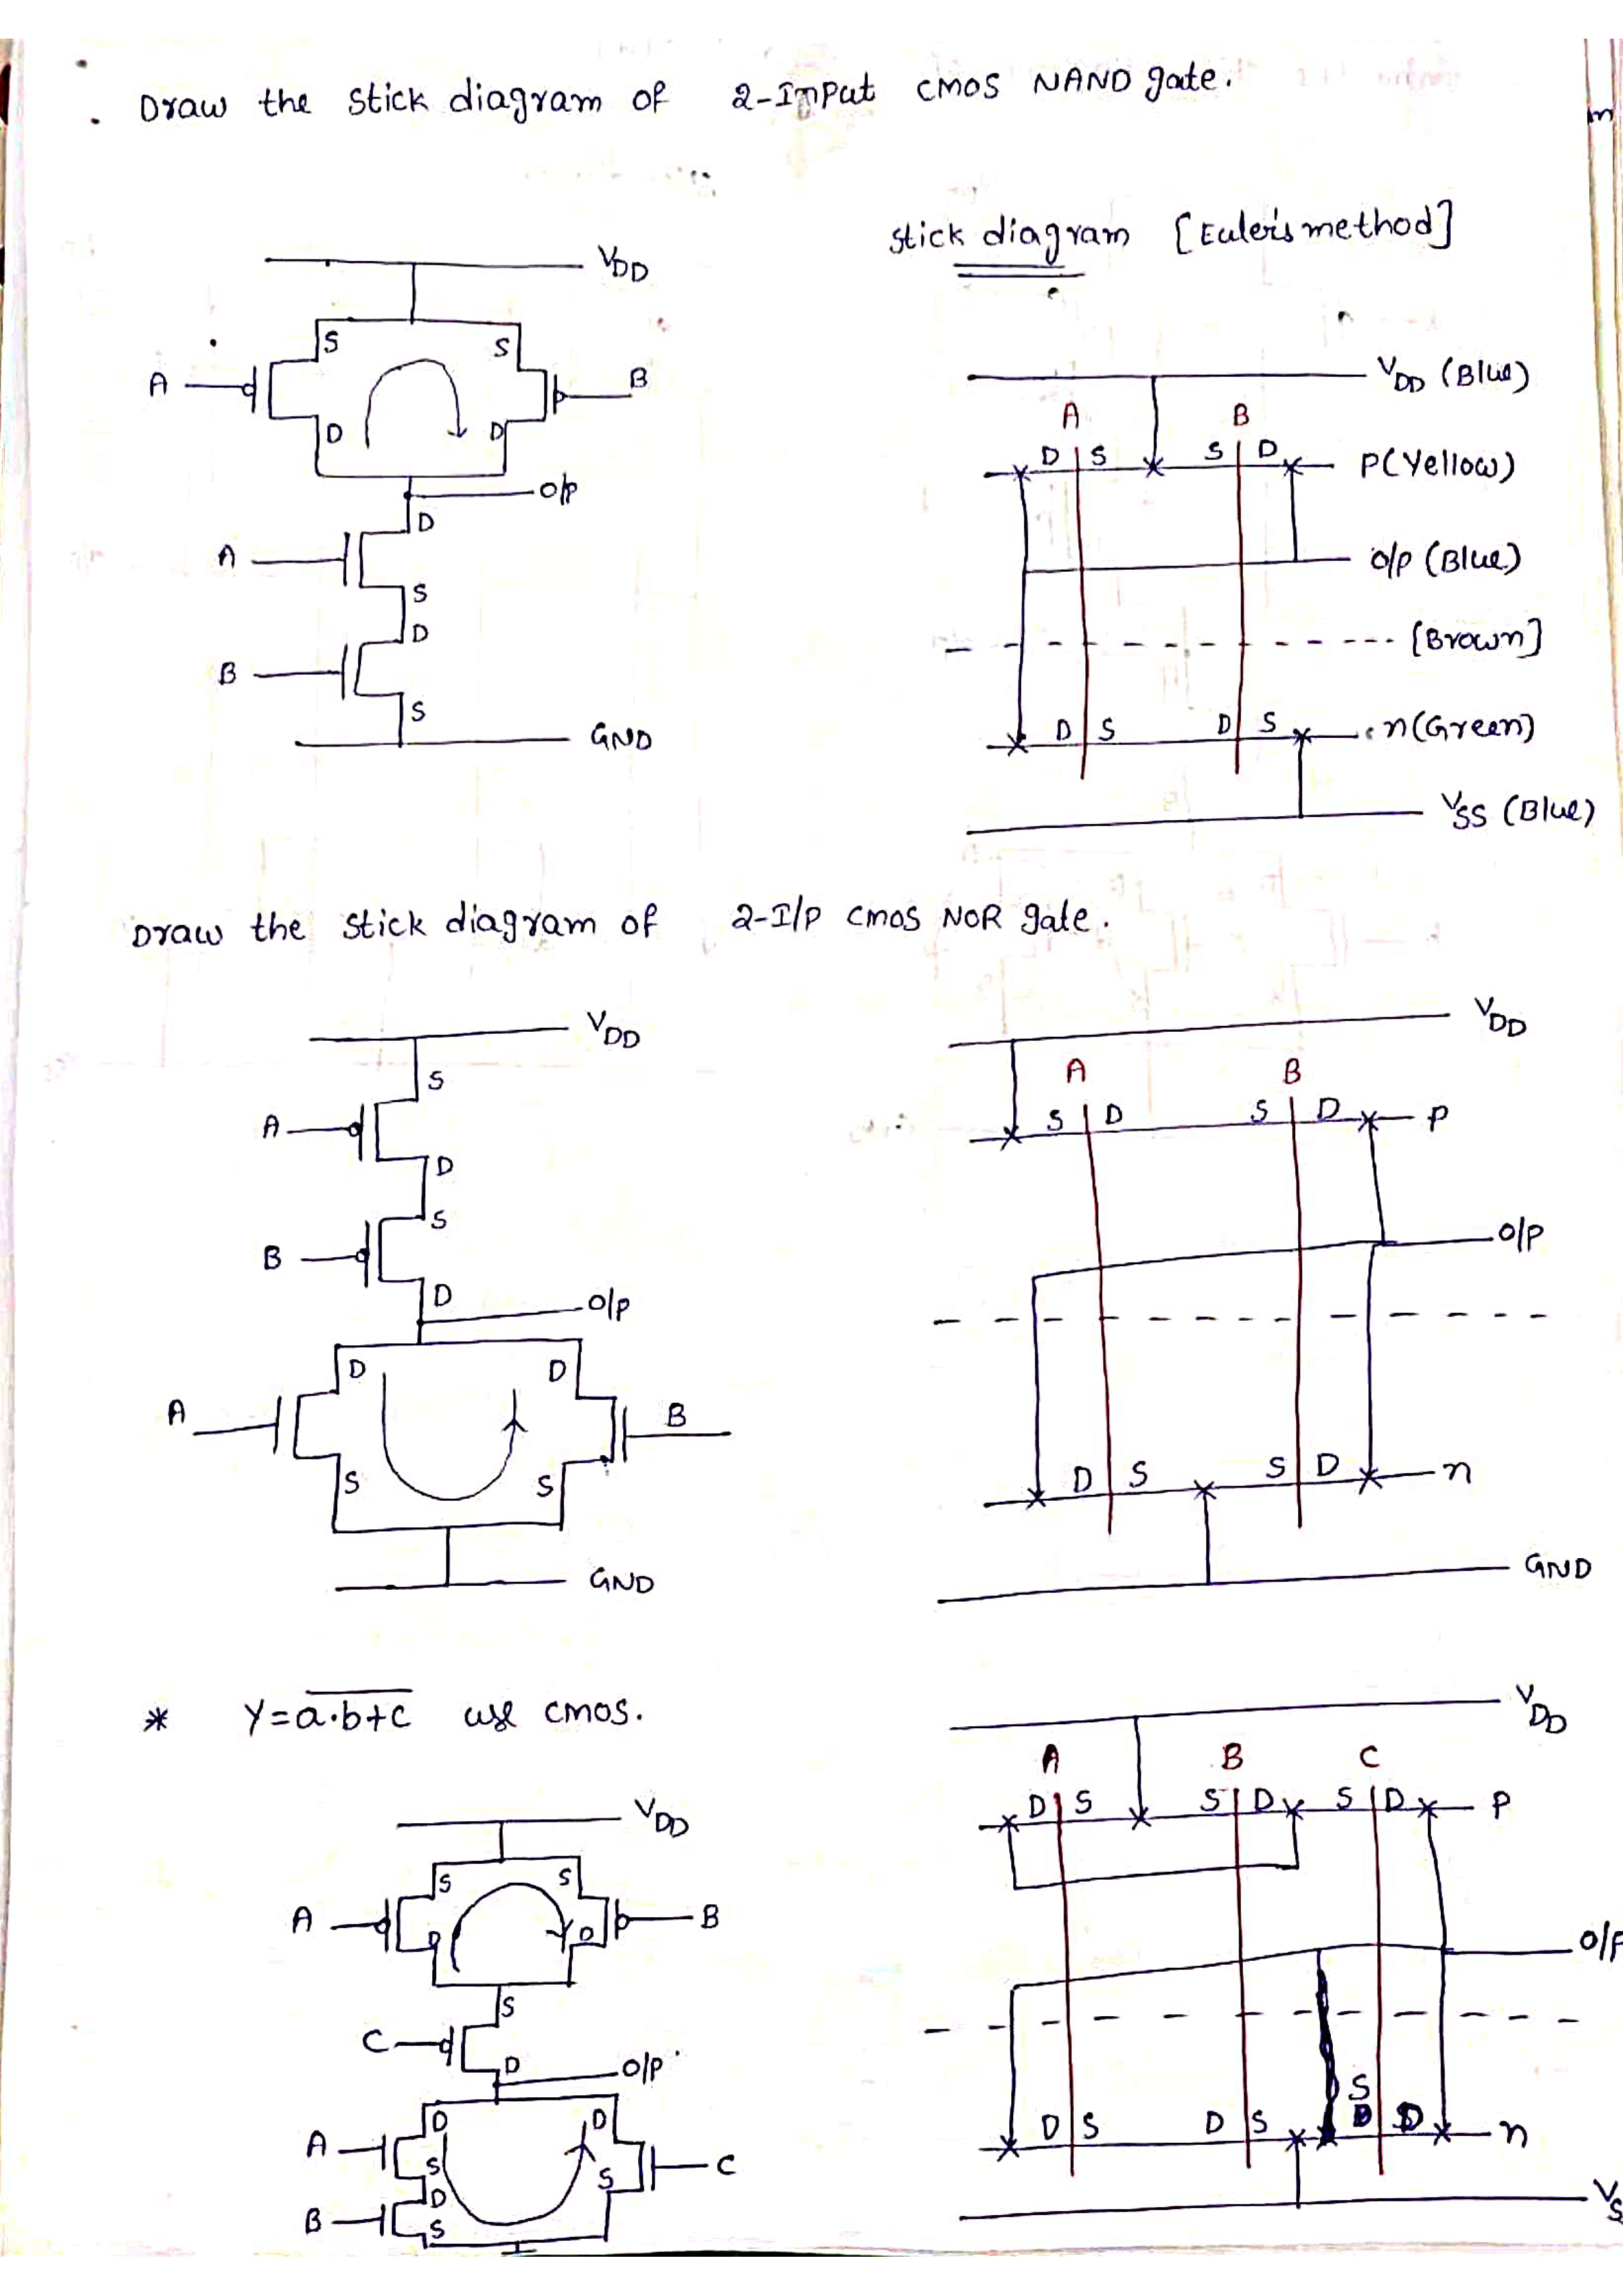 Draw the stick diagram of 2-Input CMOS NAND gate.
stick diagram [Euler's method]
VDD
S S
A B
D D
o/p
D
A
S
D
B
S
GND
VDD (Blue)
A B
D S S D P(Yellow)
o/p (Blue)
[Brown]
D S D S n(Green)
VSS (Blue)
Draw the stick diagram of 2-I/p CMOS NOR gate.
VDD
S
A
D
S
B
D
o/p
D D
A B
S S
GND
VDD
A B
S D S D P
o/p
D S S D n
GND
* Y=a.b+c use cmos.
VDD
S S
A B
D D
S
C
D
o/p
D D
A
S S C
D
B
S
VDD
A B C
D S S D S D P
o/p
S
D S D S D n
VS